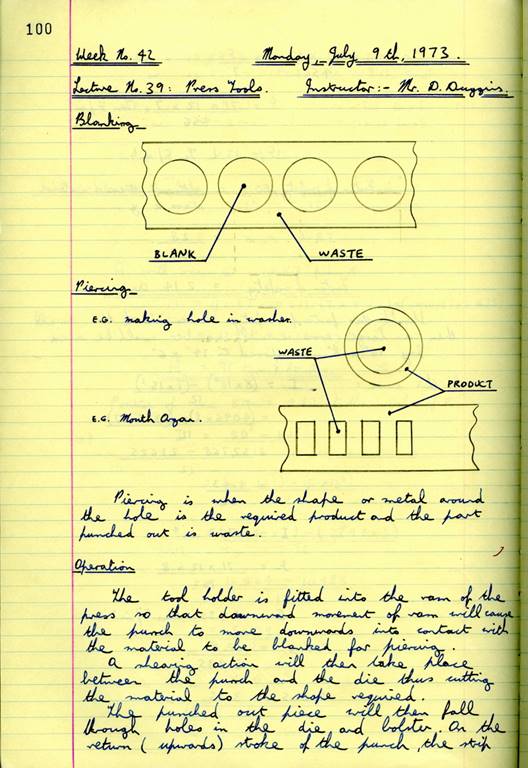 100
Week No. 42 Monday, July 9th, 1973.
Lecture No. 39: Press Tools. Instructor:- Mr. D. Duggins.
Blanking
BLANK WASTE
Piercing
E.G. making hole in washer.
WASTE
PRODUCT
E.G. Mouth Organ.
Piercing is when the shape or metal around
the hole is the required product and the part
punched out is waste.
Operation
The tool holder is fitted into the ram of the
press so that downward movement of ram will cause
the punch to move downwards into contact with
the material to be blanked for piercing.
A shearing action will then take place
between the punch and the die thus cutting
the material to the shape required.
The punched out piece will then fall
through holes in the die and bolster. On the
return (upwards) stroke of the punch, the strip